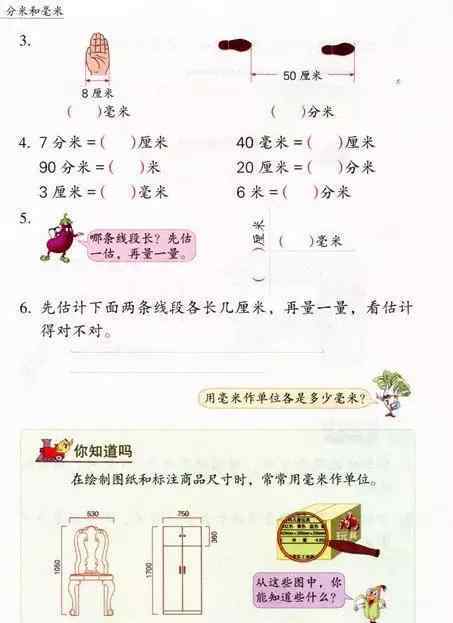 分米和毫米
3.
8 厘米
50 厘米
(  )毫米
(  )分米
4. 7 分米=(  )厘米
40 毫米=(  )厘米
90 分米=(  )米
20 厘米=(  )分米
3 厘米=(  )毫米
6 米=(  )分米
5.
哪条线段长？先估
一估，再量一量。
(  )厘米
(  )毫米
6. 先估计下面两条线段各长几厘米，再量一量，看估计
得对不对。
用毫米作单位各是多少毫米？
你知道吗
在绘制图纸和标注商品尺寸时，常常用毫米作单位。
530
1050
750
360
1700
玩具
从这些图中，你
能知道些什么？